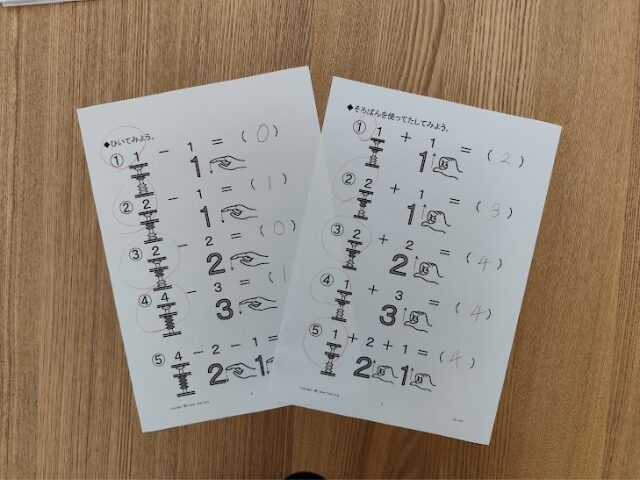 ◆ひいてみよう。
① 1 − 1 = ( 0 )
1
② 2 − 1 = ( 1 )
1
③ 2 − 2 = ( 0 )
2
④ 4 − 3 = ( 1
3
⑤ 4 − 2 − 1 =
2 1
◆そろばんを使ってたしてみよう。
① 1 + 1 = ( 2 )
1
② 2 + 1 = ( 3 )
1
③ 2 + 2 = ( 4 )
2
④ 1 + 3 = ( 4 )
3
⑤ 1 + 2 + 1 = ( 4 )
2 1